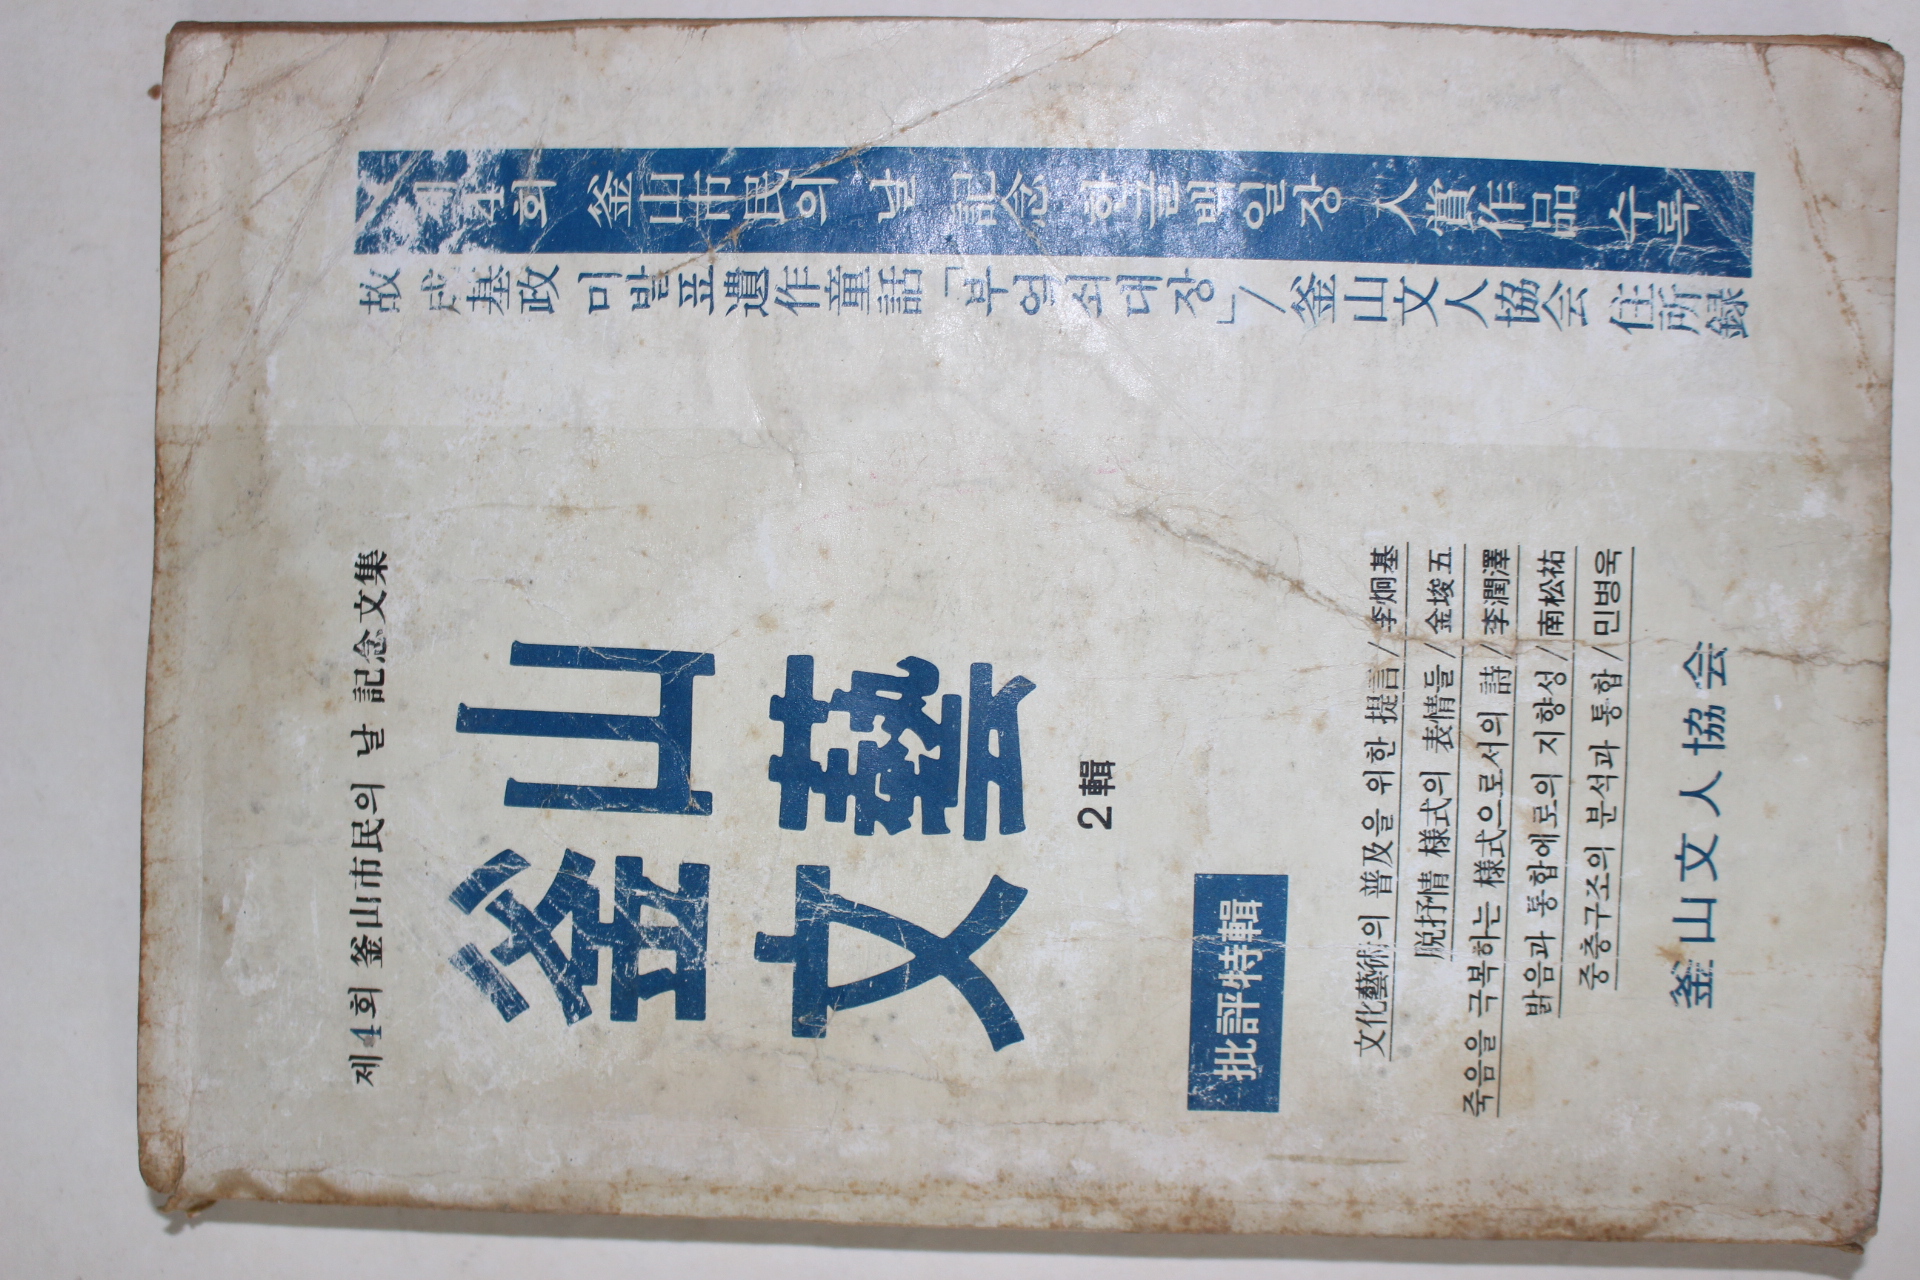 제4회 釜山市民의 날 記念文集
釜山
文藝
2輯
批評特輯
文化藝術의 普及을 위한 提言/李炯基
脱抒情 様式의 表情들/金埈五
죽음을 극복하는 様式으로서의 詩/李潤澤
밝음과 통합에로의 지향성/南松祐
중층구조의 분석과 통합/민병욱
釜山文人協会
제4회 釜山市民의 날 記念 한글백일장 入賞作品 수록
故 基政 미발표遺作童話「대장」/釜山文人協会 住所録